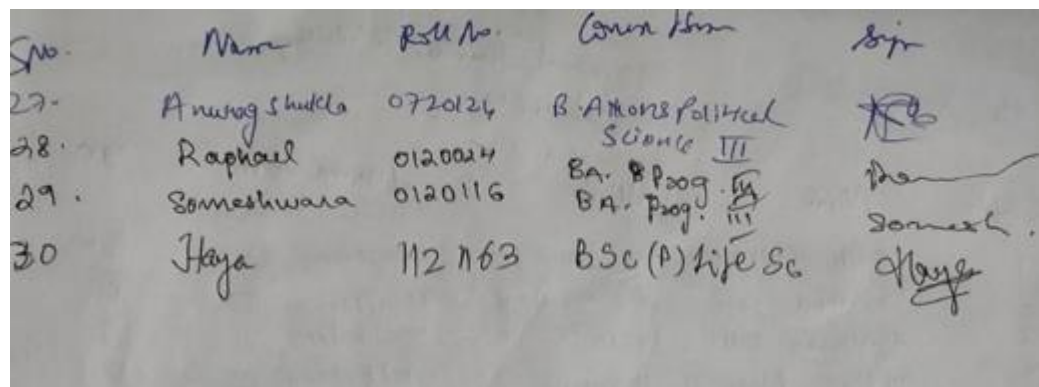 SNo. Name Roll No. Course Sign
27- Anurag Shukla 0720124 B.A Hons Political
Science III
28. Raphael 0120024 BA. Prog.
29. Someshwara 0120116 BA. Prog. III Somesh.
30 Haya BSc (P) Life Sc Haya